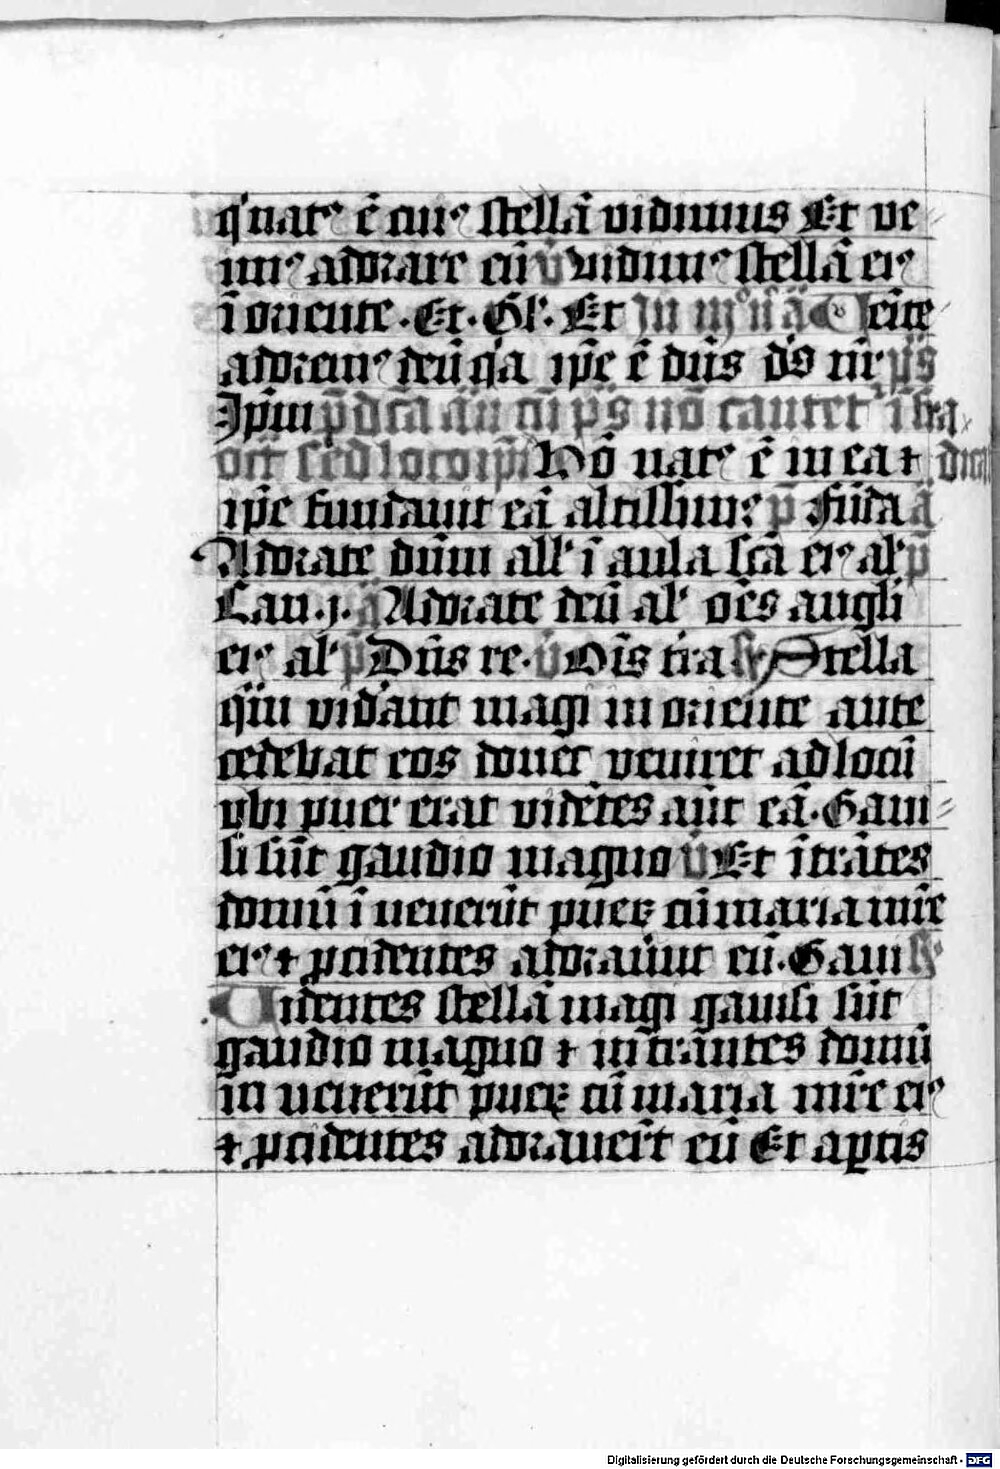 q̓ natꝰ ē cuiꝰ stellā vidimus Et ve
nimꝰ adorare eū v̄ vidimꝰ stellā eiꝰ
ī oriente. Et. Gl'. Et In iij° n̄ ā Venite
adoremꝰ deū q̓a ip̄e ē dn̄s d's nr̄ p̄s
Ip̄m p̄dc̄a añ cū p̄s nō cantet' ī fra
oct' sed loco ip̄i Hō natꝰ ē in ea ⁊ dicat'
ip̄e fundavit eā altissimꝰ p̄ Fūda ā
Adorate dn̄m all' ī aula sc̄a eiꝰ al' p̄
Can. j. ā Adorate deū al' oēs angli
eiꝰ al' p̄ Dn̄s re. v̄ Oīs tr̄a ℟ Stella
q̄m vid'ant magi in oriente ante
cedebat eos donec veniret ad locū
vbi puer erat vidētes aūt eā. Gaui
si sūt gaudio magno v̄ Et ītrātes
domū ī uenerūt pueꝝ cū maria mr̄e
eiꝰ ⁊ p̄cidentes adorauūt eū. Gaui ℟
Uidentes stellā magi gauisi sūt
gaudio magno ⁊ in trantes domū
in uenerūt pueꝝ cū maria mr̄e eiꝰ
⁊ p̄cidentes adorauer̄t eū Et aꝑtis
Digitalisierung gefördert durch die Deutsche Forschungsgemeinschaft - DFG